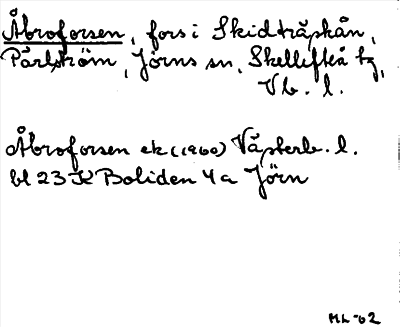 Åbroforsen, fors i Skidträskån,
Pårlström, Jörns sn, Skellefteå tg,
Vb. l.
Åbroforsen ek (1960) Västerb. l.
bl 23 K Boliden 4a Jörn
ML-62